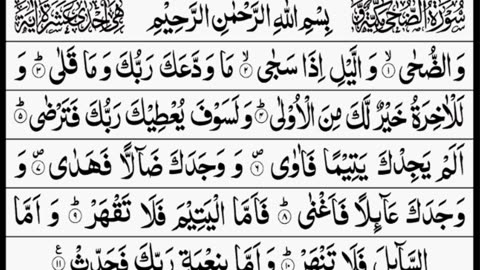 سُوْرَةُ الضُّحٰى مَكِّيَّةٌ بِسْمِ اللهِ الرَّحْمٰنِ الرَّحِيْمِ وَهِيَ اِحْدٰى عَشْرَةَ اٰيَةً
وَ الضُّحٰى ۙ﴿۱﴾ وَ الَّيْلِ اِذَا سَجٰى ۙ﴿۲﴾ مَا وَدَّعَكَ رَبُّكَ وَ مَا قَلٰى ؕ﴿۳﴾ وَ
لَلْاٰخِرَةُ خَيْرٌ لَّكَ مِنَ الْاُوْلٰى ؕ﴿۴﴾ وَ لَسَوْفَ يُعْطِيْكَ رَبُّكَ فَتَرْضٰى ؕ﴿۵﴾
اَلَمْ يَجِدْكَ يَتِيْمًا فَاٰوٰى ۪﴿۶﴾ وَ وَجَدَكَ ضَآلًّا فَهَدٰى ۪﴿۷﴾ وَ
وَجَدَكَ عَآىِٕلًا فَاَغْنٰى ؕ﴿۸﴾ فَاَمَّا الْيَتِيْمَ فَلَا تَقْهَرْ ؕ﴿۹﴾ وَ اَمَّا
السَّآىِٕلَ فَلَا تَنْهَرْ ؕ﴿۱۰﴾ وَ اَمَّا بِنِعْمَةِ رَبِّكَ فَحَدِّثْ ﴿۱۱﴾ ع